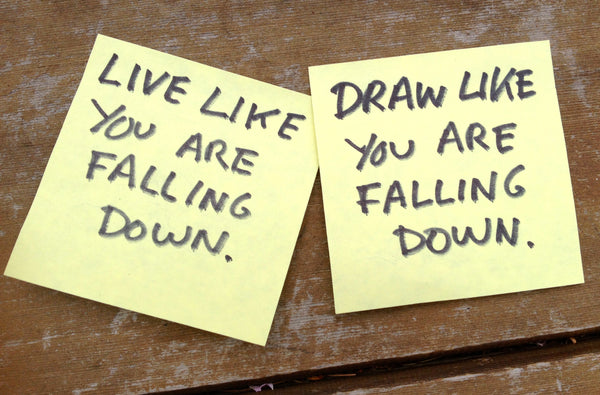 LIVE LIKE
YOU ARE
FALLING
DOWN.
DRAW LIKE
YOU ARE
FALLING
DOWN.